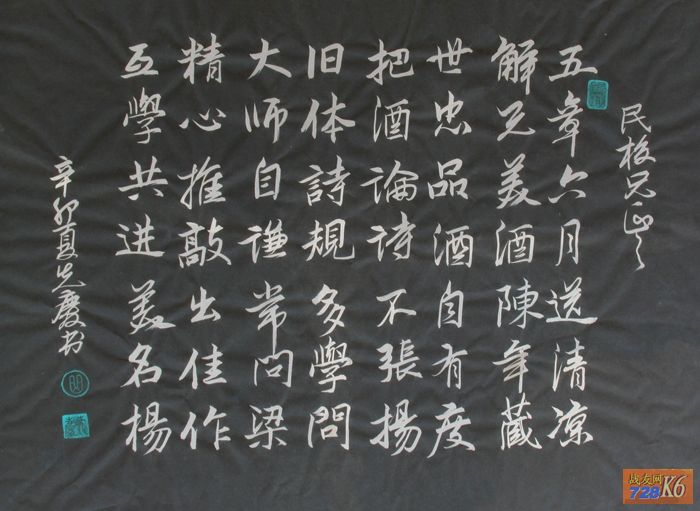 民权兄正之
五章六月送清凉
解兄美酒陳年藏
世忠品酒自有度
把酒論詩不張揚
旧体詩規多學問
大师自谦常问梁
精心推敲出佳作
互學共进美名楊
辛卯夏先慶书
战友网
728K6